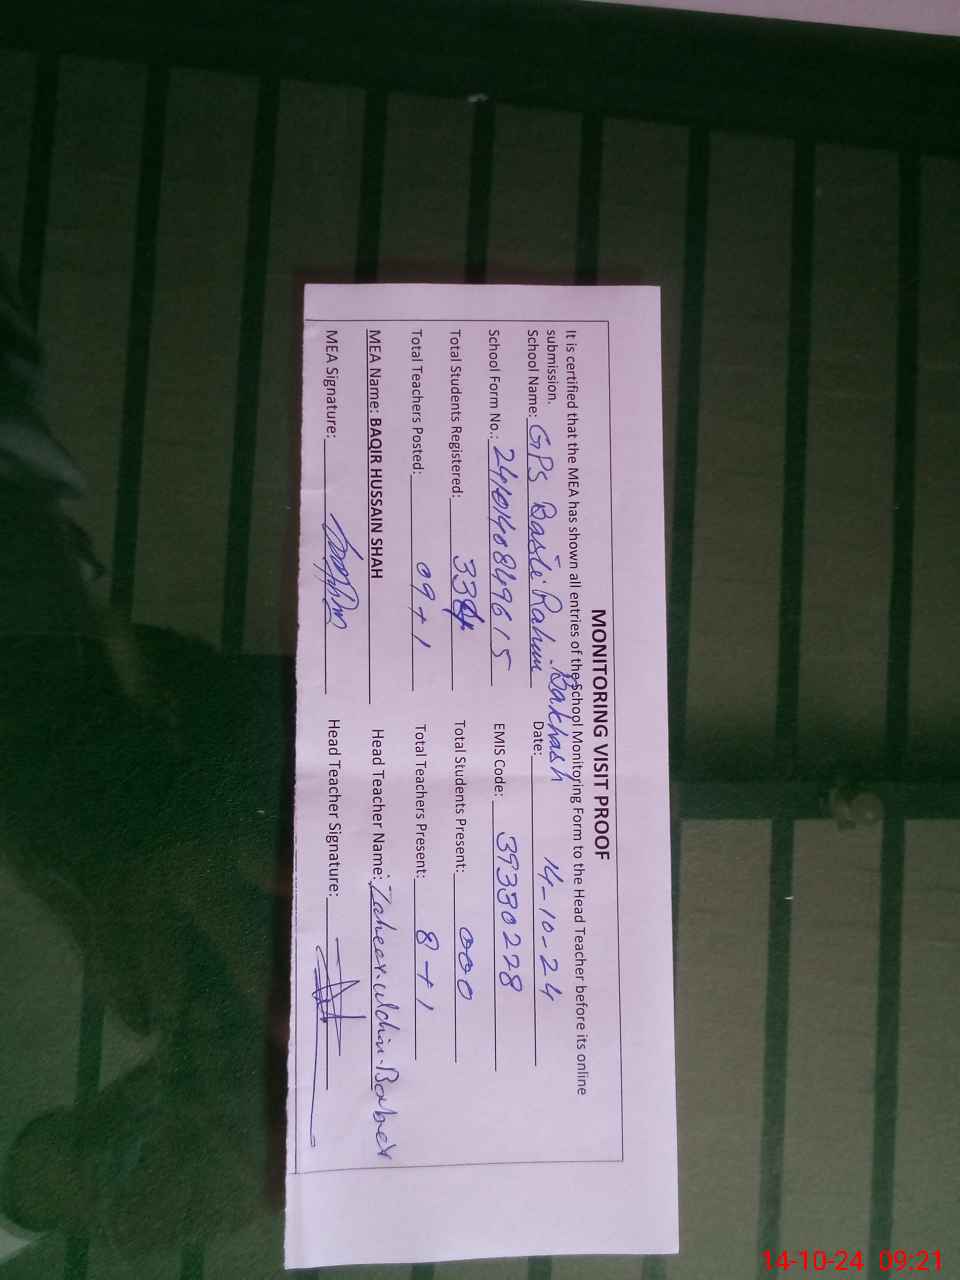 MONITORING VISIT PROOF
It is certified that the MEA has shown all entries of the School Monitoring Form to the Head Teacher before its online
submission.
School Name: GPS Basti Rahim Bakhash Date: 14-10-24
School Form No.: EMIS Code: 39330228
Total Students Registered: 334 Total Students Present: 000
Total Teachers Posted: 09+1 Total Teachers Present: 8+1
MEA Name: BAQIR HUSSAIN SHAH Head Teacher Name: Zaheer.uldin.Baber
MEA Signature: Head Teacher Signature:
14-10-24 09:21